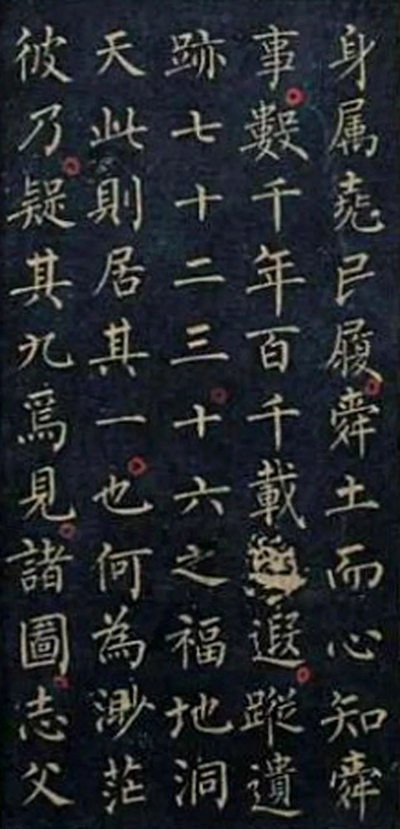 身属尭民履舜土而心知舜
事數千年百千載遐蹤遺
跡七十二三十六之福地洞
天此則居其一也何為渺茫
彼乃疑其九焉見諸圖志父